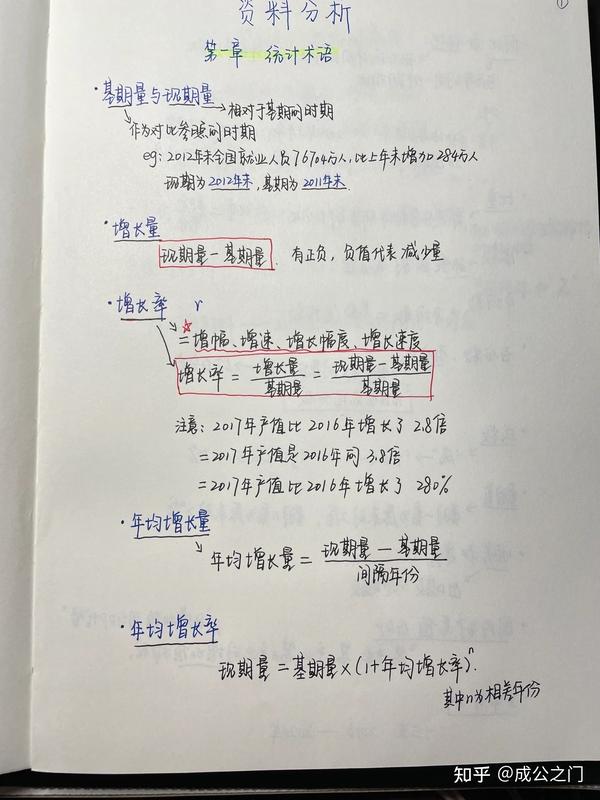 ①
资料分析
第一章 统计术语
· 基期量与现期量 → 相对于基期的时期
作为对比参照的时期
eg: 2012年末全国就业人员76704万人, 比上年末增加284万人
现期为2012年末, 基期为2011年末.
· 增长量
现期量-基期量. 有正负, 负值代表减少量
· 增长率 r
☆ = 增幅、增速、增长幅度、增长速度
增长率 = 增长量/基期量 = 现期量-基期量/基期量
注意: 2017年产值比2016年增长了2.8倍
=2017年产值是2016年的3.8倍
=2017年产值比2016年增长了280%
· 年均增长量
年均增长量 = 现期量-基期量/间隔年份
· 年均增长率
现期量 = 基期量×(1+年均增长率)ⁿ.
其中n为相差年份
知乎 @成公之门